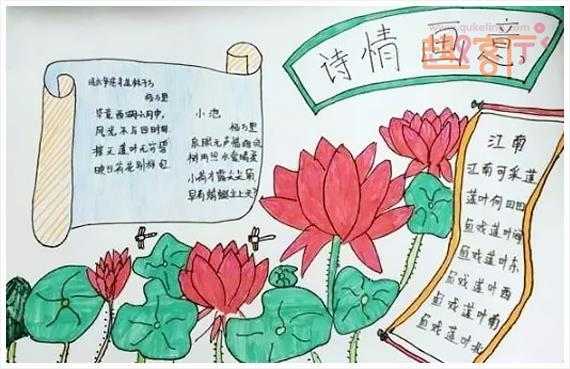 www.quketing.com
趣客厅
诗情画意
晓出净慈寺送林子方
杨万里
毕竟西湖六月中,
风光不与四时同.
接天莲叶无穷碧
映日荷花别样红
小池
杨万里
泉眼无声惜细流
树阴照水爱晴柔
小荷才露尖尖角
早有蜻蜓立上头
江南
江南可采莲
莲叶何田田
鱼戏莲叶间
鱼戏莲叶东
鱼戏莲叶西
鱼戏莲叶南
鱼戏莲叶北